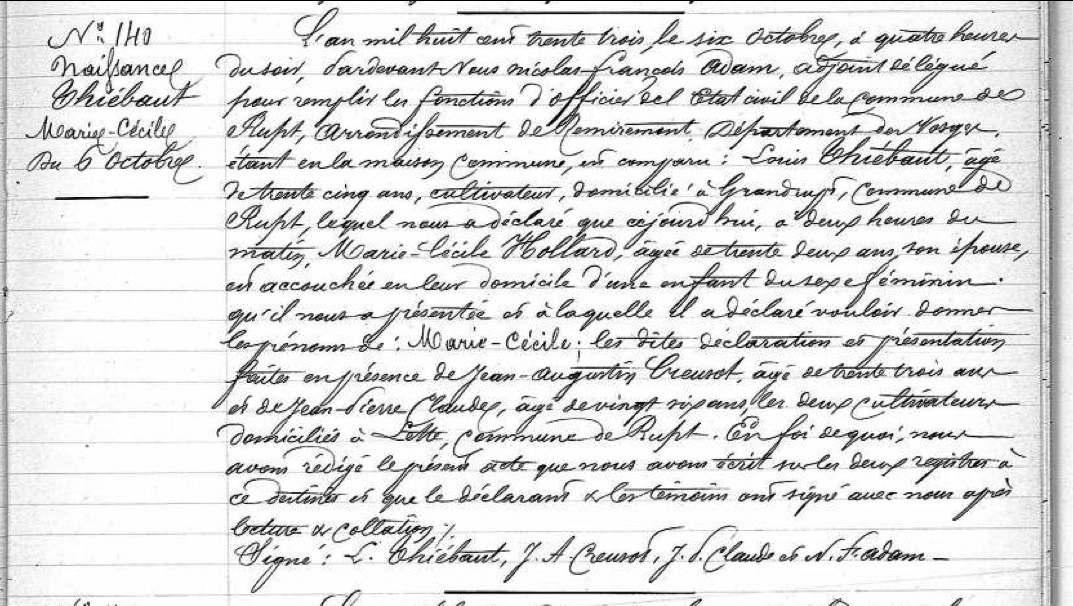 N° 140
Naissance
Thiébaut
Marie-Cécile
Du 6 Octobre.
L'an mil huit cent trente trois, le six Octobre, à quatre heures
du soir, Pardevant Nous nicolas-françois Adam, adjoint délégué
pour remplir les fonctions d'officier de l'Etat civil de la commune de
Rupt, Arrondissement de Remiremont, Département des Vosges,
étant en la maison commune, est comparu : Louis Thiébaut, âgé
de trente cinq ans, cultivateur, domicilié à Grandrupt, Commune de
Rupt, lequel nous a déclaré que cejourd'hui, à deux heures du
matin, Marie-Cécile Hollard, âgée de trente deux ans, son épouse,
est accouchée en leur domicile d'une enfant du sexe féminin.
qu'il nous a présentée et à laquelle il a déclaré vouloir donner
les prénoms de : Marie-Cécile ; les dites déclaration et présentation
faites en présence de Jean-Augustin Creusot, âgé de trente trois ans
et de Jean-Pierre Claude, âgé de vingt six ans, les deux cultivateurs
domiciliés à Lette, commune de Rupt. En foi de quoi, nous
avons rédigé le présent acte que nous avons écrit sur les deux registres à
ce destinés et que le déclarant & les témoins ont signé avec nous après
lecture & collation ./.
Signé : L. Thiébaut, J. A. Creusot, J. P. Claude et N. F. adam –